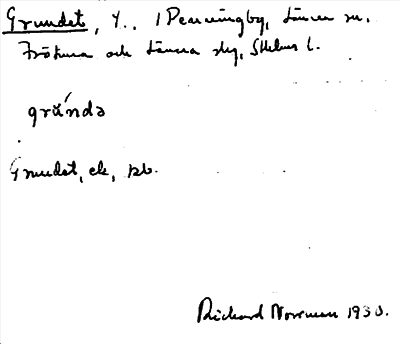 Grundet, t., 1 Penningby, Länna sn.
Frötuna och Länna skg, Sthlms l.
grúndə
Grundet, ek, jb.
Richard Norrman 1930.